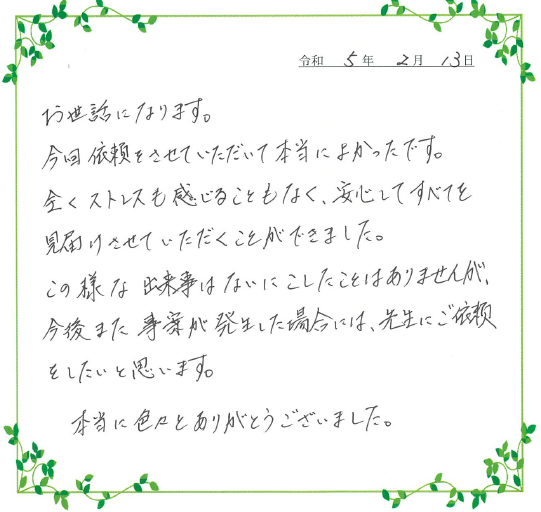 令和 5年 2月 13日
お世話になります。
今回依頼をさせていただいて本当によかったです。
全くストレスも感じることもなく、安心してすべてを
見届けさせていただくことができました。
この様な出来事はないにこしたことはありませんが、
今後また事案が発生した場合には、先生にご依頼
をしたいと思います。
本当に色々とありがとうございました。